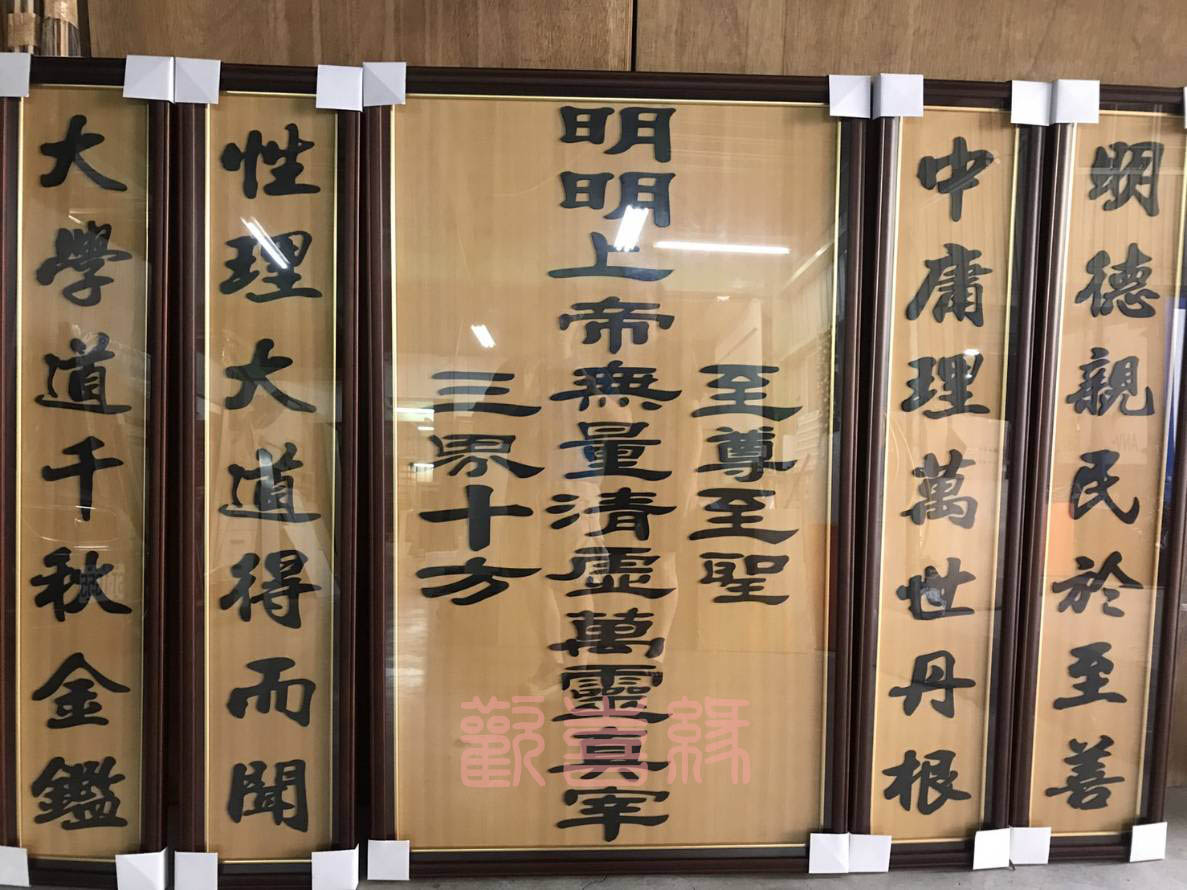 明德親民於至善
中庸理萬世丹根
至尊至聖
明明上帝無量清虛萬靈真宰
三界十方
性理大道得而聞
大學道千秋金鑑
歡喜緣